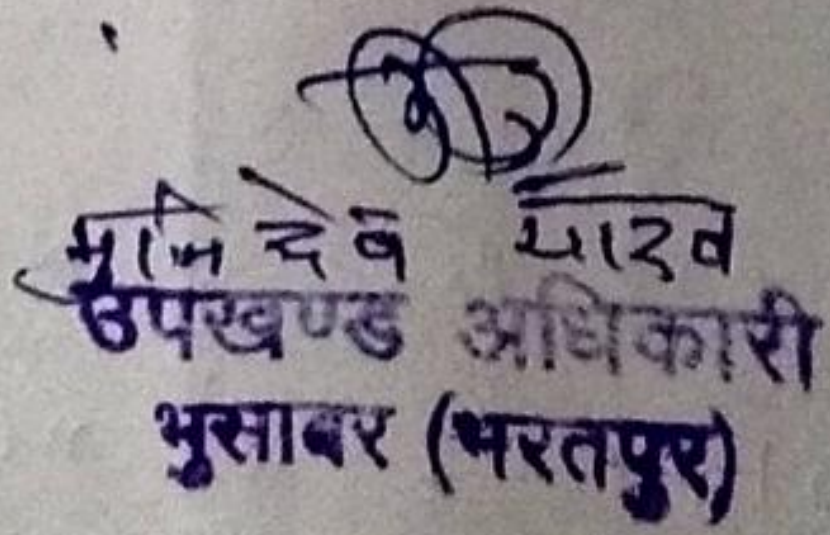 मुनि देव यादव
उपखण्ड अधिकारी
भुसावर (भरतपुर)